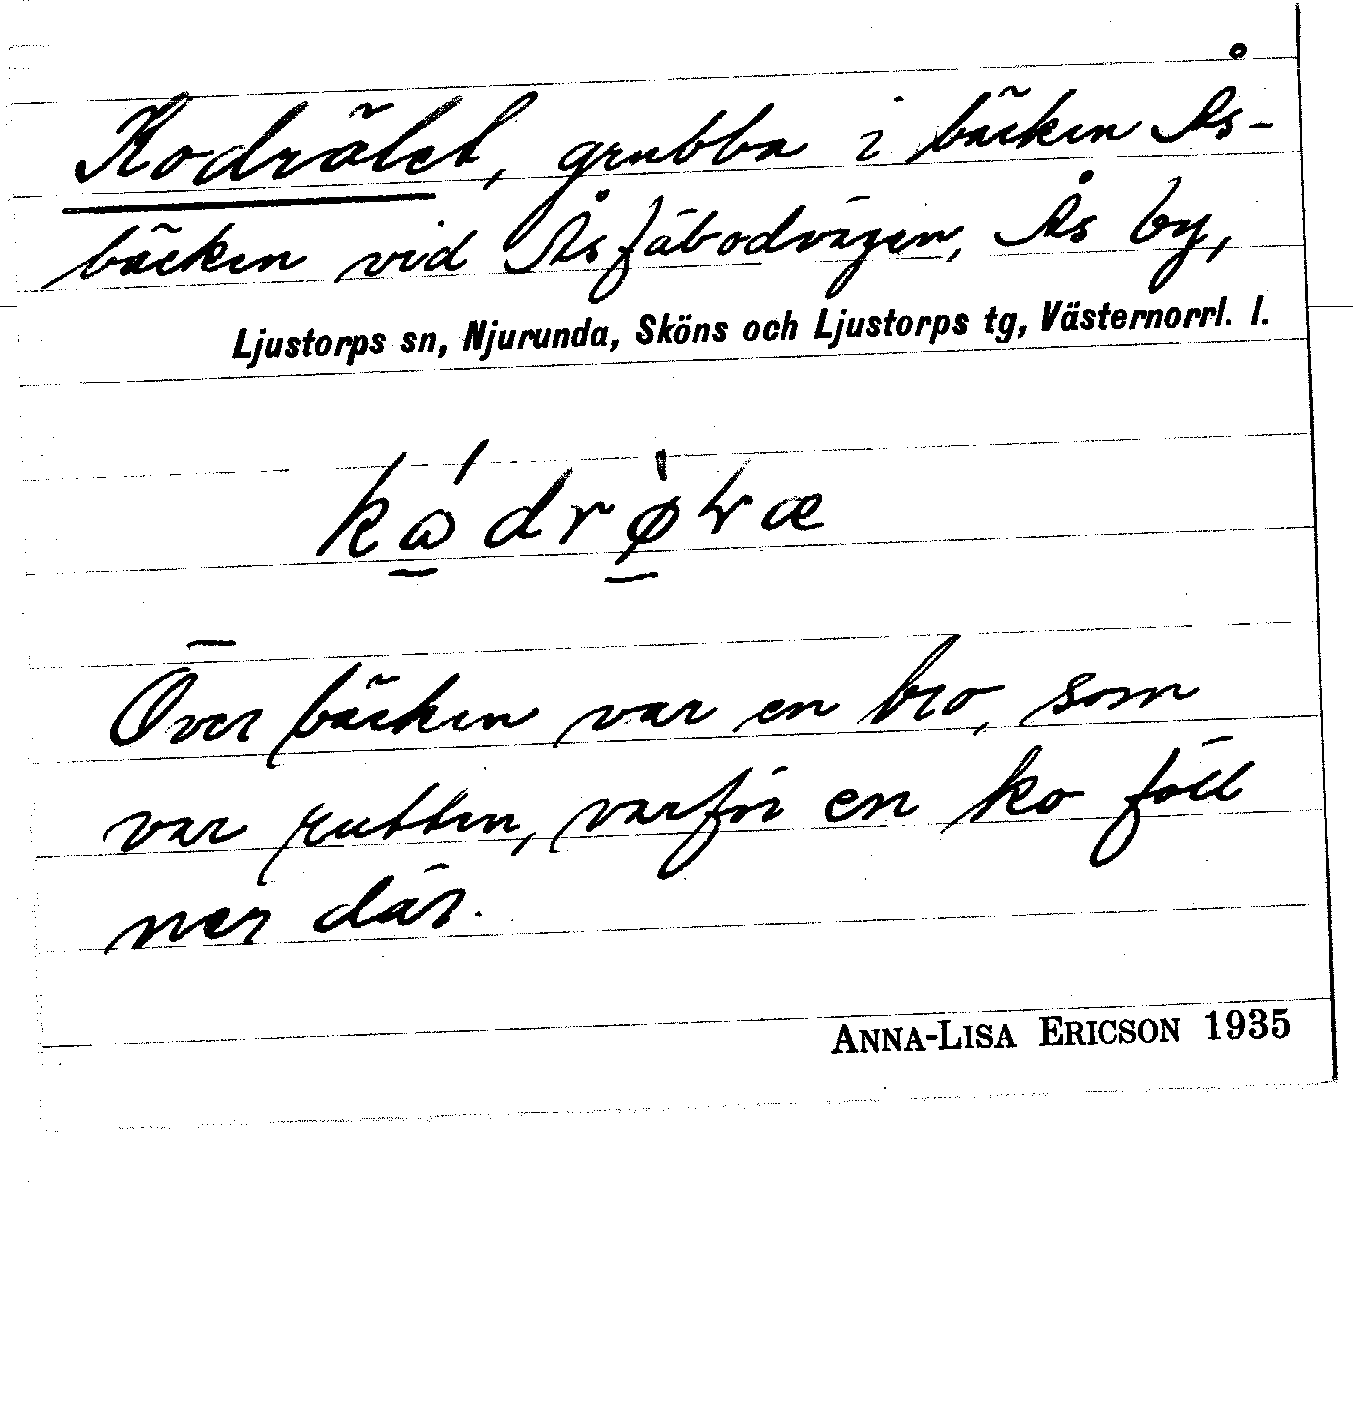 Kodrälet, grubba i bäcken Ås-
bäcken vid Åsfäbodvägen, Ås by,
Ljustorps sn, Njurunda, Sköns och Ljustorps tg, Västernorrl. l.
Över bäcken var en bro, som
var rutten, varför en ko föll
ner där.
ANNA-LISA ERICSON 1935